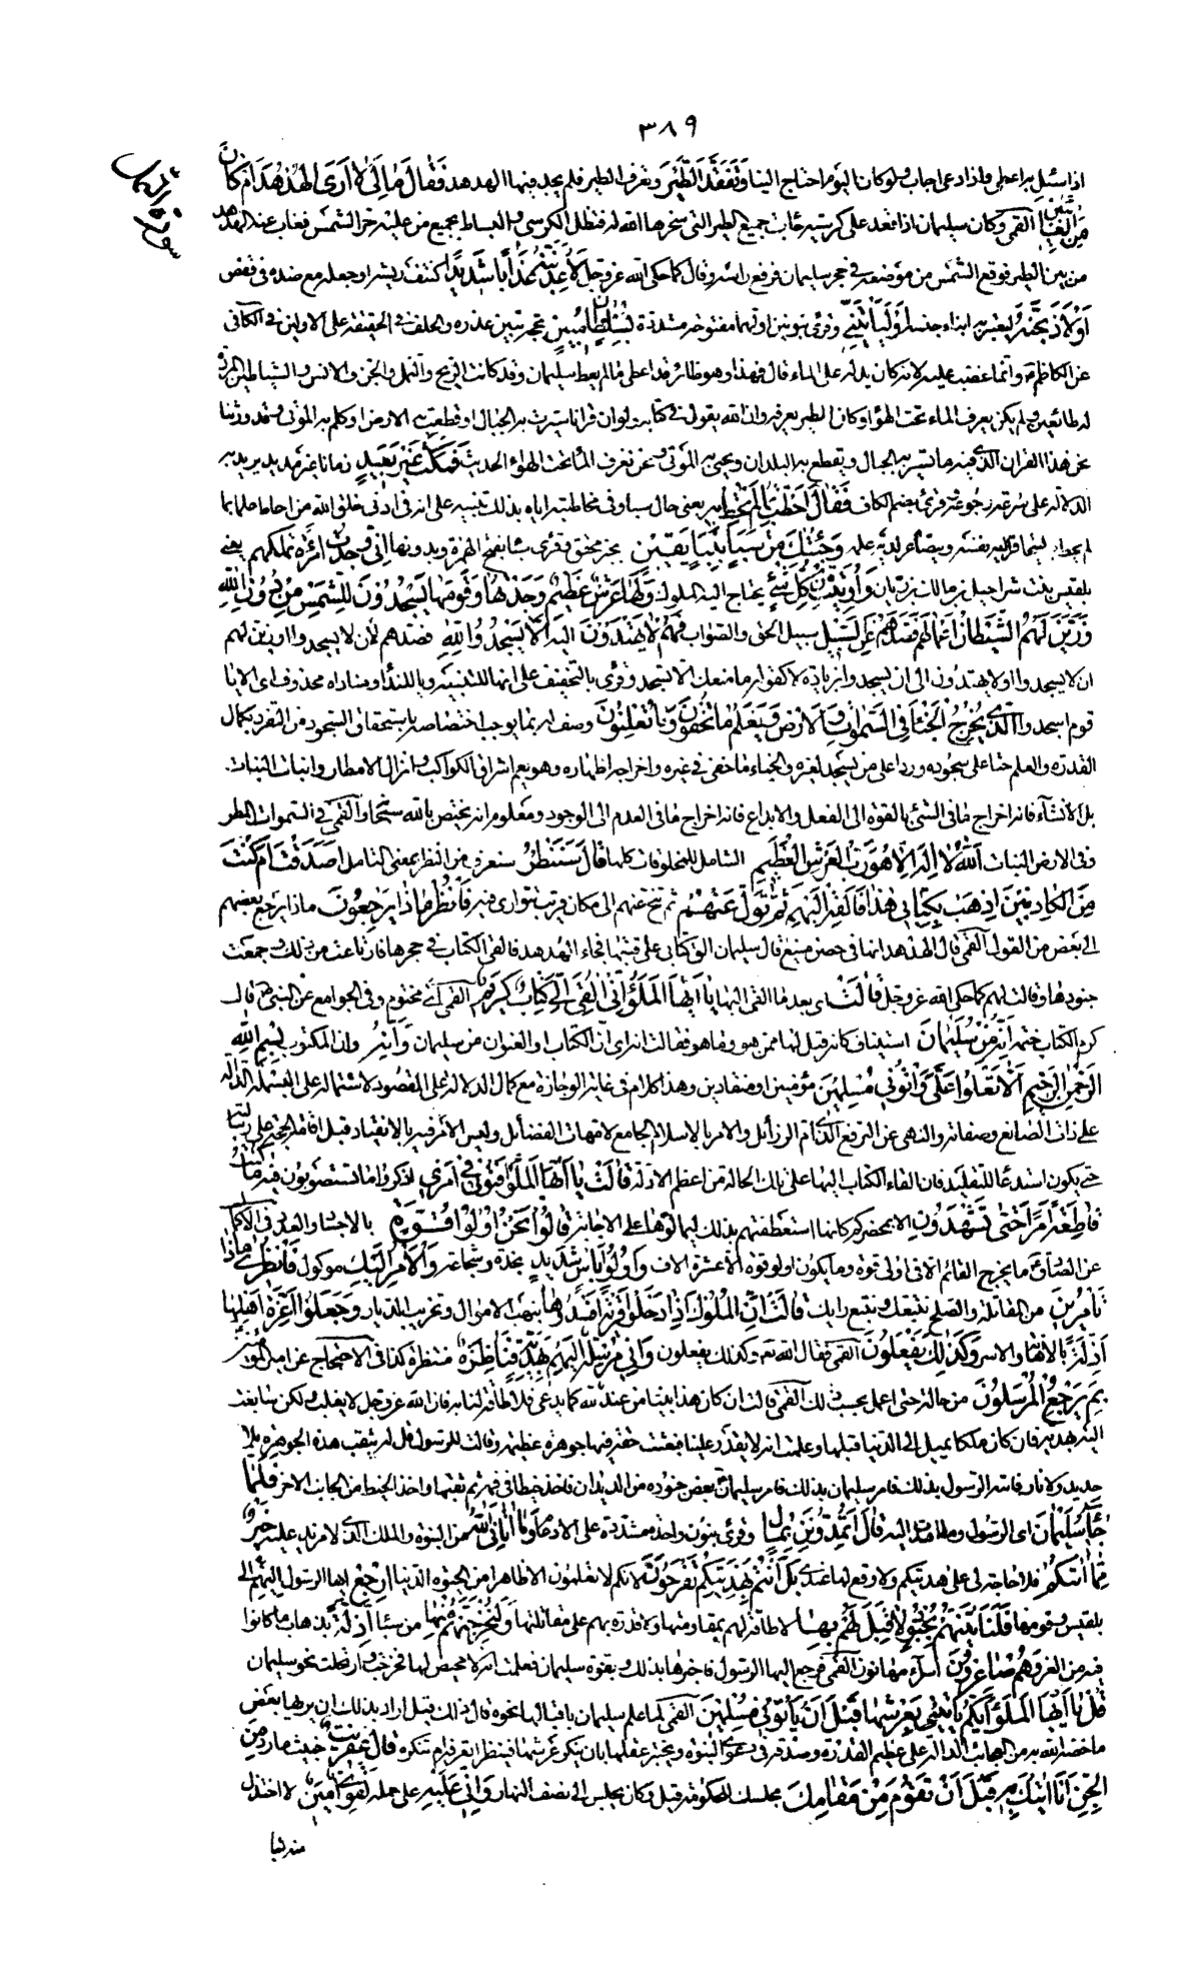 ٣٨٩
سورة النمل
اذا سئل به اعطى واذا دعى اجاب ولو كان اليوم احتاج الينا وَتَفَقَّدَ الطَّيْرَ وتعرف الطير فلم يجد فيها الهدهد فَقَالَ مَا لِىَ لَا اَرَى الْهُدْهُدَ اَمْ كَانَ
مِنَ الْغَائِبِينَ القمى وكان سليمان اذا قعد على كرسيه جائت جميع الطير التى سخرها الله له فتظل الكرسى والبساط بجميع من عليه من حر الشمس فغاب عنه الهدهد
من بين الطير فوقع الشمس من موضعه فى حجر سليمان فرفع رأسه وقال كما حكى الله عز وجل لَاُعَذِّبَنَّهُ عَذَابًا شَدِيدًا كنتف ريشه او جعله مع ضده فى قفص
اَوْ لَاَذْبَحَنَّهُ ليعتبر به ابناء جنسه اَوْ لَيَاْتِيَنِّى وقرئ بنونين اولهما مفتوحة مشددة بِسُلْطَانٍ مُبِينٍ بحجة تبين عذره والحلف فى الحقيقة على الاولين فى الكافى
عن الكاظم وانما غضب عليه لانه كان يدله على الماء قال فهذا وهو طائر قد اعطى ما لم يعط سليمان وقد كانت الريح والنمل والجن والانس والشياطين المردة
له طائعين ولم يكن يعرف الماء تحت الهواء وكان الطير يعرفه وان الله يقول فى كتابه ولو ان قرانا سيرت به الجبال او قطعت به الارض او كلم به الموتى وقد ورثنا
نحن هذا القران الذى فيه ما تسير به الجبال ويقطع به البلدان ويحيى به الموتى ونحن نعرف الماء تحت الهواء الحديث فَمَكَثَ غَيْرَ بَعِيدٍ زمانا غير مديد يريد به
الدلالة على سرعة رجوعه وقرئ بضم الكاف فَقَالَ اَحَطْتُ بِمَا لَمْ تُحِطْ بِهِ يعنى حال سبا وفى مخاطبته اياه بذلك تنبيه على انه فى ادنى خلق الله من احاط علما بما
لم يحط به ليتحاقر اليه نفسه ويتصاغر لديه علمه وَجِئْتُكَ مِنْ سَبَإٍ بِنَبَإٍ يَقِينٍ بخبر محقق وقرئ سبا بفتح الهمزة وبدونها اِنِّى وَجَدْتُ امْرَاَةً تَمْلِكُهُمْ يعنى
بلقيس بنت شراحيل بن مالك بن ريان وَاُوتِيَتْ مِنْ كُلِّ شَىْءٍ يحتاج اليه الملوك وَلَهَا عَرْشٌ عَظِيمٌ وَجَدْتُهَا وَقَوْمَهَا يَسْجُدُونَ لِلشَّمْسِ مِنْ دُونِ اللهِ
وَزَيَّنَ لَهُمُ الشَّيْطَانُ اَعْمَالَهُمْ فَصَدَّهُمْ عَنِ السَّبِيلِ سبيل الحق والصواب فَهُمْ لَا يَهْتَدُونَ اليه اَلَّا يَسْجُدُوا لِلهِ فصدهم لان لا يسجدوا او زين لهم
ان لا يسجدوا او لا يهتدون الى ان يسجدوا بزيادة لا كقوله ما منعك الا تسجد وقرئ بالتخفيف على انها للتنبيه ويا للنداء ومناداه محذوف اى الا يا
قوم اسجدوا اَلَّذِى يُخْرِجُ الْخَبْءَ فِى السَّمٰوَاتِ وَالْاَرْضِ وَيَعْلَمُ مَا تُخْفُونَ وَمَا تُعْلِنُونَ وصف له بما يوجب اختصاصه باستحقاق السجود من التفرد بكمال
القدرة والعلم حثا على سجوده وردا على من يسجد لغيره والخباء ما خفى فى غيره واخراجه اظهاره وهو يعم اشراق الكواكب وانزال الامطار وانبات النبات
بل الانشاء فانه اخراج ما فى الشئ بالقوة الى الفعل والابداع فانه اخراج ما فى العدم الى الوجود ومعلوم انه يختص بالله سبحانه القمى فى السموات المطر
وفى الارض النبات اَللهُ لَا اِلٰهَ اِلَّا هُوَ رَبُّ الْعَرْشِ الْعَظِيمِ الشامل للمخلوقات كلها قَالَ سَنَنْظُرُ سنعرف من النظر بمعنى التامل اَصَدَقْتَ اَمْ كُنْتَ
مِنَ الْكَاذِبِينَ اِذْهَبْ بِكِتَابِى هٰذَا فَاَلْقِهْ اِلَيْهِمْ ثُمَّ تَوَلَّ عَنْهُمْ ثم تنح عنهم الى مكان قريب تتوارى فيه فَانْظُرْ مَاذَا يَرْجِعُونَ ماذا يرجع بعضهم
الى بعض من القول القمى قال الهدهد انها فى حصن منيع قال سليمان الق كتابى على قبتها فجاء الهدهد فالقى الكتاب فى حجرها فارتاعت من ذلك وجمعت
جنودها وقالت لهم كما حكى الله عز وجل قَالَتْ اى بعد ما القى اليها يَا اَيُّهَا الْمَلَؤُا اِنِّى اُلْقِىَ اِلَىَّ كِتَابٌ كَرِيمٌ القمى اى مختوم وفى الجوامع عن النبى قال
كرم الكتاب ختمه اِنَّهُ مِنْ سُلَيْمَانَ استيناف كانه قيل لها ممن هو وما هو فقالت انه اى ان الكتاب والعنوان من سليمان وَاِنَّهُ وان المكتوب بِسْمِ اللهِ
الرَّحْمٰنِ الرَّحِيمِ اَلَّا تَعْلُوا عَلَىَّ وَاْتُونِى مُسْلِمِينَ مؤمنين او منقادين وهذا كلام فى غاية الوجازة مع كمال الدلالة على المقصود لاشتماله على البسملة الدالة
على ذات الصانع وصفاته والنهى عن الترفع الذى هو ام الرذائل والامر بالاسلام الجامع لامهات الفضائل وليس الامر فيه بالانقياد قبل اقامة الحجة على رسالته
حتى يكون استدعاء للتقليد فان القاء الكتاب اليها على تلك الحالة من اعظم الادلة قَالَتْ يَا اَيُّهَا الْمَلَؤُا اَفْتُونِى فِى اَمْرِى اذكروا ما تستصوبون فيه مَا كُنْتُ
قَاطِعَةً اَمْرًا حَتَّى تَشْهَدُونِ الا بمحضركم كانها استعطفتهم بذلك ليمالؤها على الاجابة قَالُوا نَحْنُ اُولُوا قُوَّةٍ بالاجساد والعدد فى الاكمال
عن الصادق ما يخرج القائم الا فى اولى قوة وما يكون اولو قوة الا عشرة الاف وَاُولُوا بَاْسٍ شَدِيدٍ نجدة وشجاعة وَالْاَمْرُ اِلَيْكِ موكول فَانْظُرِى مَاذَا
تَاْمُرِينَ من المقاتلة والصلح نتبعك ونتبع رايك قَالَتْ اِنَّ الْمُلُوكَ اِذَا دَخَلُوا قَرْيَةً اَفْسَدُوهَا بنهب الاموال وتخريب الديار وَجَعَلُوا اَعِزَّةَ اَهْلِهَا
اَذِلَّةً بالاهانة والاسر وَكَذٰلِكَ يَفْعَلُونَ القمى فقال الله تعه وكذلك يفعلون وَاِنِّى مُرْسِلَةٌ اِلَيْهِمْ بِهَدِيَّةٍ فَنَاظِرَةٌ منتظرة كذا فى الاحتجاج عن امير المؤمنين
بِمَ يَرْجِعُ الْمُرْسَلُونَ من حاله حتى اعمل بحسب ذلك القمى قالت ان كان هذا نبيا من عند الله كما يدعى فلا طاقة لنا به فان الله عز وجل لا يغلب ولكن سابعث
اليه بهدية فان كان ملكا يميل الى الدنيا قبلها وعلمت انه لا يقدر علينا فبعثت حقة فيها جوهرة عظيمة وقالت للرسول قل له يثقب هذه الجوهرة بلا
حديد ولا نار فاتاه الرسول بذلك فامر سليمان بذلك فامر سليمان بعض جنوده من الديدان فاخذ خيطا فى فمه ثم ثقبها واخذ الخيط من الجانب الاخر فَلَمَّا
جَاءَ سُلَيْمَانَ اى الرسول وما اهدت اليه قَالَ اَتُمِدُّونَنِ بِمَالٍ وقرئ بنون واحدة مشددة على الادغام فَمَا اٰتَانِىَ اللهُ من النبوة والملك الذى لا مزيد عليه خَيْرٌ
مِمَّا اٰتٰكُمْ فلا حاجة لى الى هديتكم ولا وقع لها عندى بَلْ اَنْتُمْ بِهَدِيَّتِكُمْ تَفْرَحُونَ لانكم لا تعلمون الا ظاهرا من الحيوة الدنيا اِرْجِعْ ايها الرسول اِلَيْهِمْ الى
بلقيس وقومها فَلَنَاْتِيَنَّهُمْ بِجُنُودٍ لَا قِبَلَ لَهُمْ بِهَا لا طاقة لهم بمقاومتها ولا قدرة بهم على مقاتلتها وَلَنُخْرِجَنَّهُمْ مِنْهَا من سبا اَذِلَّةً بذهاب ما كانوا
فيه من العز وَهُمْ صَاغِرُونَ اسراء مهانون القمى فرجع اليها الرسول فاخبرها بذلك وبقوة سليمان فعلمت انه لا محيص لها فخرجت وارتحلت نحو سليمان
قَالَ يَا اَيُّهَا الْمَلَؤُا اَيُّكُمْ يَاْتِينِى بِعَرْشِهَا قَبْلَ اَنْ يَاْتُونِى مُسْلِمِينَ القمى لما علم سليمان باقبالها نحوه قال ذلك قيل اراد بذلك ان يريها بعض
ما خصه الله به من العجائب الدالة على عظيم القدرة وصدقه فى دعوى النبوة ويختبر عقلها بان ينكر عرشها فينظر اتعرفه ام تنكره قَالَ عِفْرِيتٌ خبيث مارد مِنَ
الْجِنِّ اَنَا اٰتِيكَ بِهِ قَبْلَ اَنْ تَقُومَ مِنْ مَقَامِكَ مجلسك للحكومة قيل وكان يجلس الى نصف النهار وَاِنِّى عَلَيْهِ على حمله لَقَوِىٌّ اَمِينٌ لا اختزل
منه شيئا